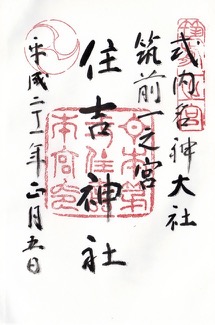 式内名神大社
筑前一之宮
住吉神社
平成二十一年正月五日